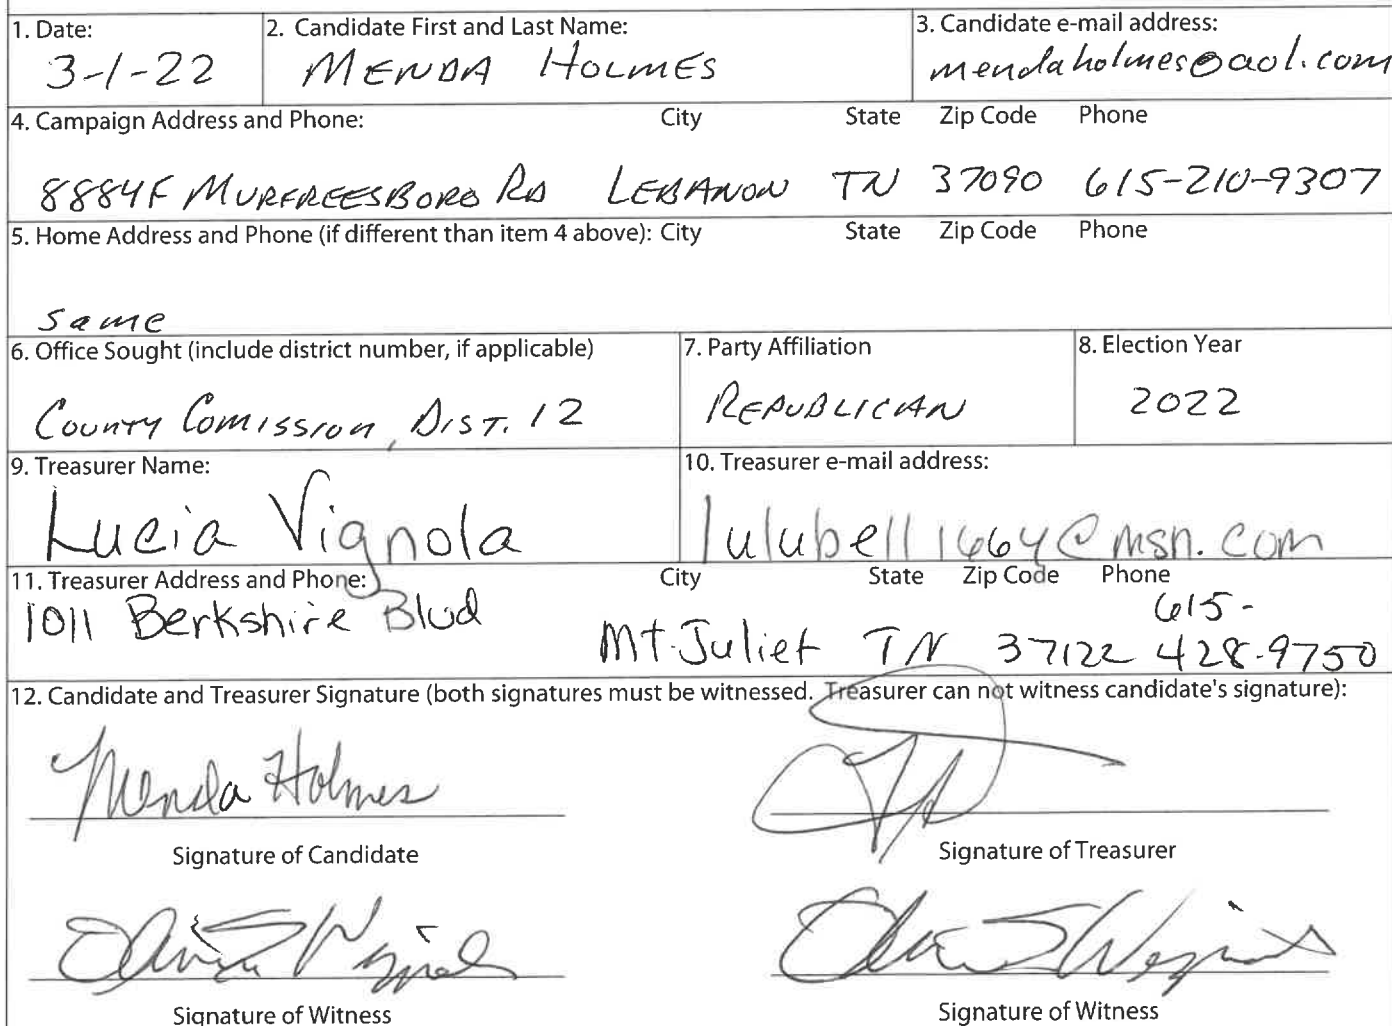 1. Date: 2. Candidate First and Last Name: 3. Candidate e-mail address:
3-1-22 MENDA HOLMES mendaholmes@aol.com
4. Campaign Address and Phone: City State Zip Code Phone
8884F MURFREESBORO RD LEBANON TN 37090 615-210-9307
5. Home Address and Phone (if different than item 4 above): City State Zip Code Phone
same
6. Office Sought (include district number, if applicable) 7. Party Affiliation 8. Election Year
COUNTY COMISSION, DIST. 12 REPUBLICAN 2022
9. Treasurer Name: 10. Treasurer e-mail address:
Lucia Vignola lulubell1664@msn.com
11. Treasurer Address and Phone: City State Zip Code Phone
1011 Berkshire Blvd Mt. Juliet TN 37122 615-
428-9750
12. Candidate and Treasurer Signature (both signatures must be witnessed. Treasurer can not witness candidate's signature):
Menda Holmes
Signature of Candidate Signature of Treasurer
Signature of Witness Signature of Witness